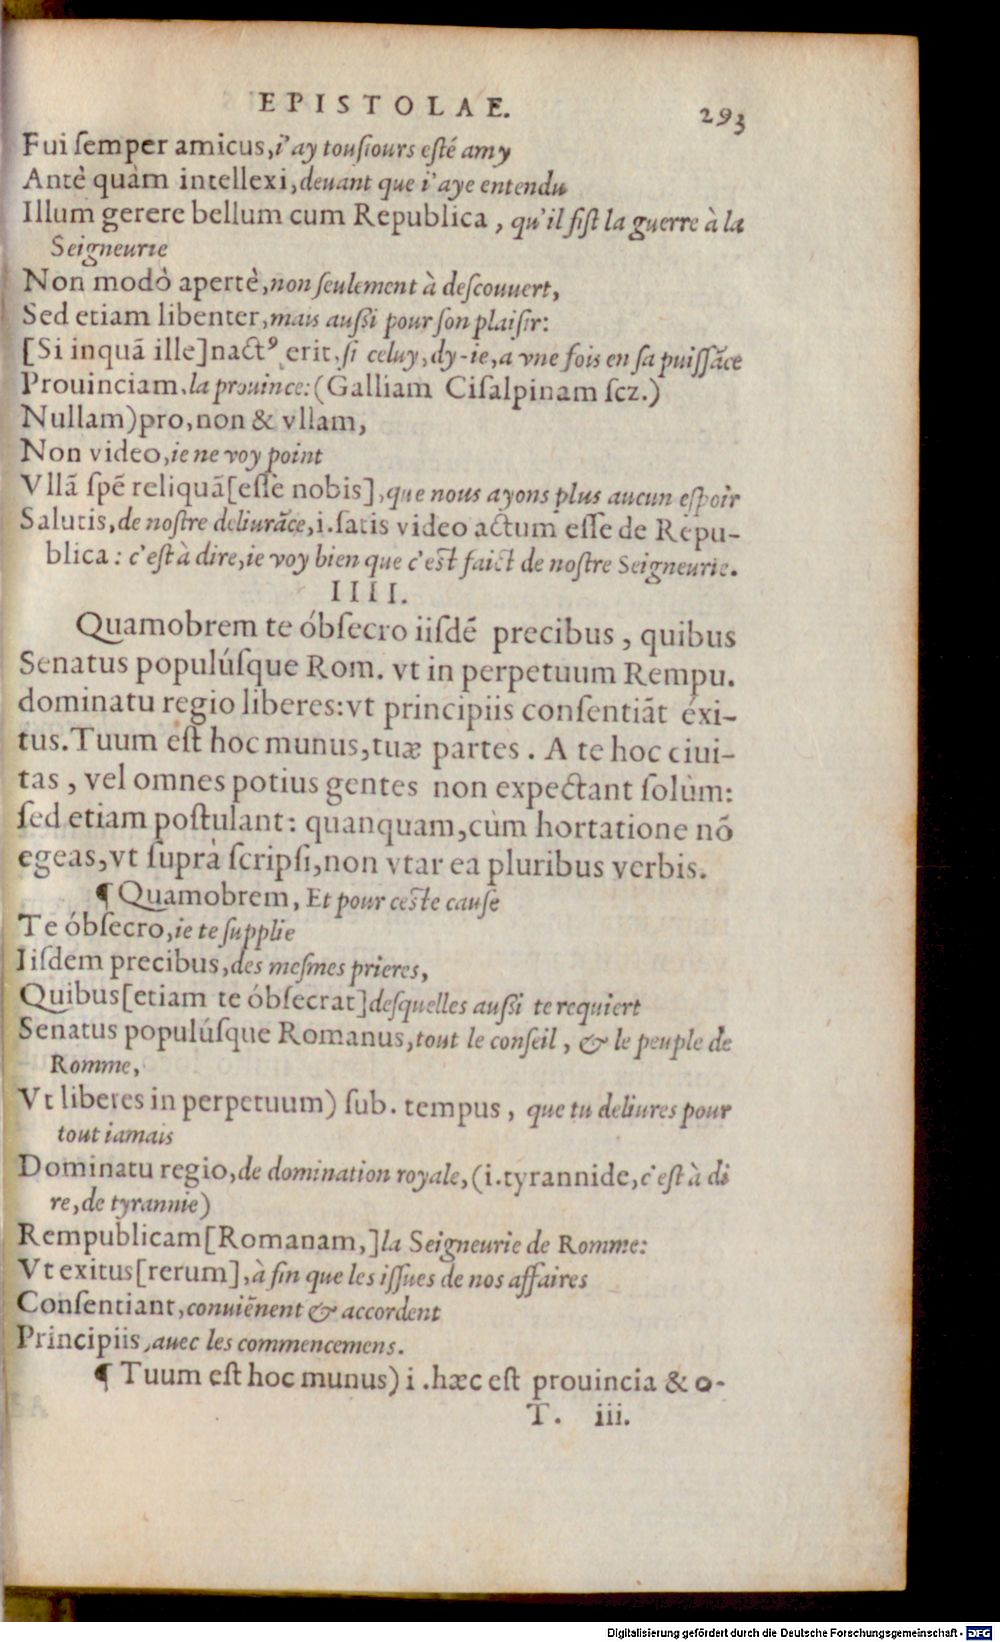 EPISTOLAE. 293
Fui ſemper amicus, i'ay touſiours eſté amy
Antè quàm intellexi, deuant que i'aye entendu
Illum gerere bellum cum Republica, qu'il fiſt la guerre à la
Seigneurie
Non modò apertè, non ſeulement à deſcouuert,
Sed etiam libenter, mais auſsi pour ſon plaiſir:
[Si inquā ille] nactꝰ erit, ſi celuy, dy-ie, a vne fois en ſa puiſſāce
Prouinciam, la prouince: (Galliam Ciſalpinam ſcz.)
Nullam) pro, non & vllam,
Non video, ie ne voy point
Vllā ſpē reliquā [eſſe nobis], que nous ayons plus aucun eſpoir
Salutis, de noſtre deliurāce, i. ſatis video actum eſſe de Repu-
blica: c'eſt à dire, ie voy bien que c'eſt faict de noſtre Seigneurie.
IIII.
Quamobrem te óbſecro iiſdē precibus, quibus
Senatus populúſque Rom. vt in perpetuum Rempu.
dominatu regio liberes: vt principiis conſentiāt éxi-
tus. Tuum eſt hoc munus, tuæ partes. A te hoc ciui-
tas, vel omnes potius gentes non expectant ſolùm:
ſed etiam poſtulant: quanquam, cùm hortatione nō
egeas, vt ſuprà ſcripſi, non vtar ea pluribus verbis.
¶ Quamobrem, Et pour ceſte cauſe
Te óbſecro, ie te ſupplie
Iiſdem precibus, des meſmes prieres,
Quibus [etiam te óbſecrat] deſquelles auſsi te requiert
Senatus populúſque Romanus, tout le conſeil, & le peuple de
Romme,
Vt liberes in perpetuum) ſub. tempus, que tu deliures pour
tout iamais
Dominatu regio, de domination royale, (i. tyrannide, c'eſt à di
re, de tyrannie)
Rempublicam [Romanam,] la Seigneurie de Romme:
Vt exitus [rerum], à fin que les iſſues de nos affaires
Conſentiant, conuiēnent & accordent
Principiis, auec les commencemens.
¶ Tuum eſt hoc munus) i. hæc eſt prouincia & o-
T. iii.
Digitalisierung gefördert durch die Deutsche Forschungsgemeinschaft - DFG